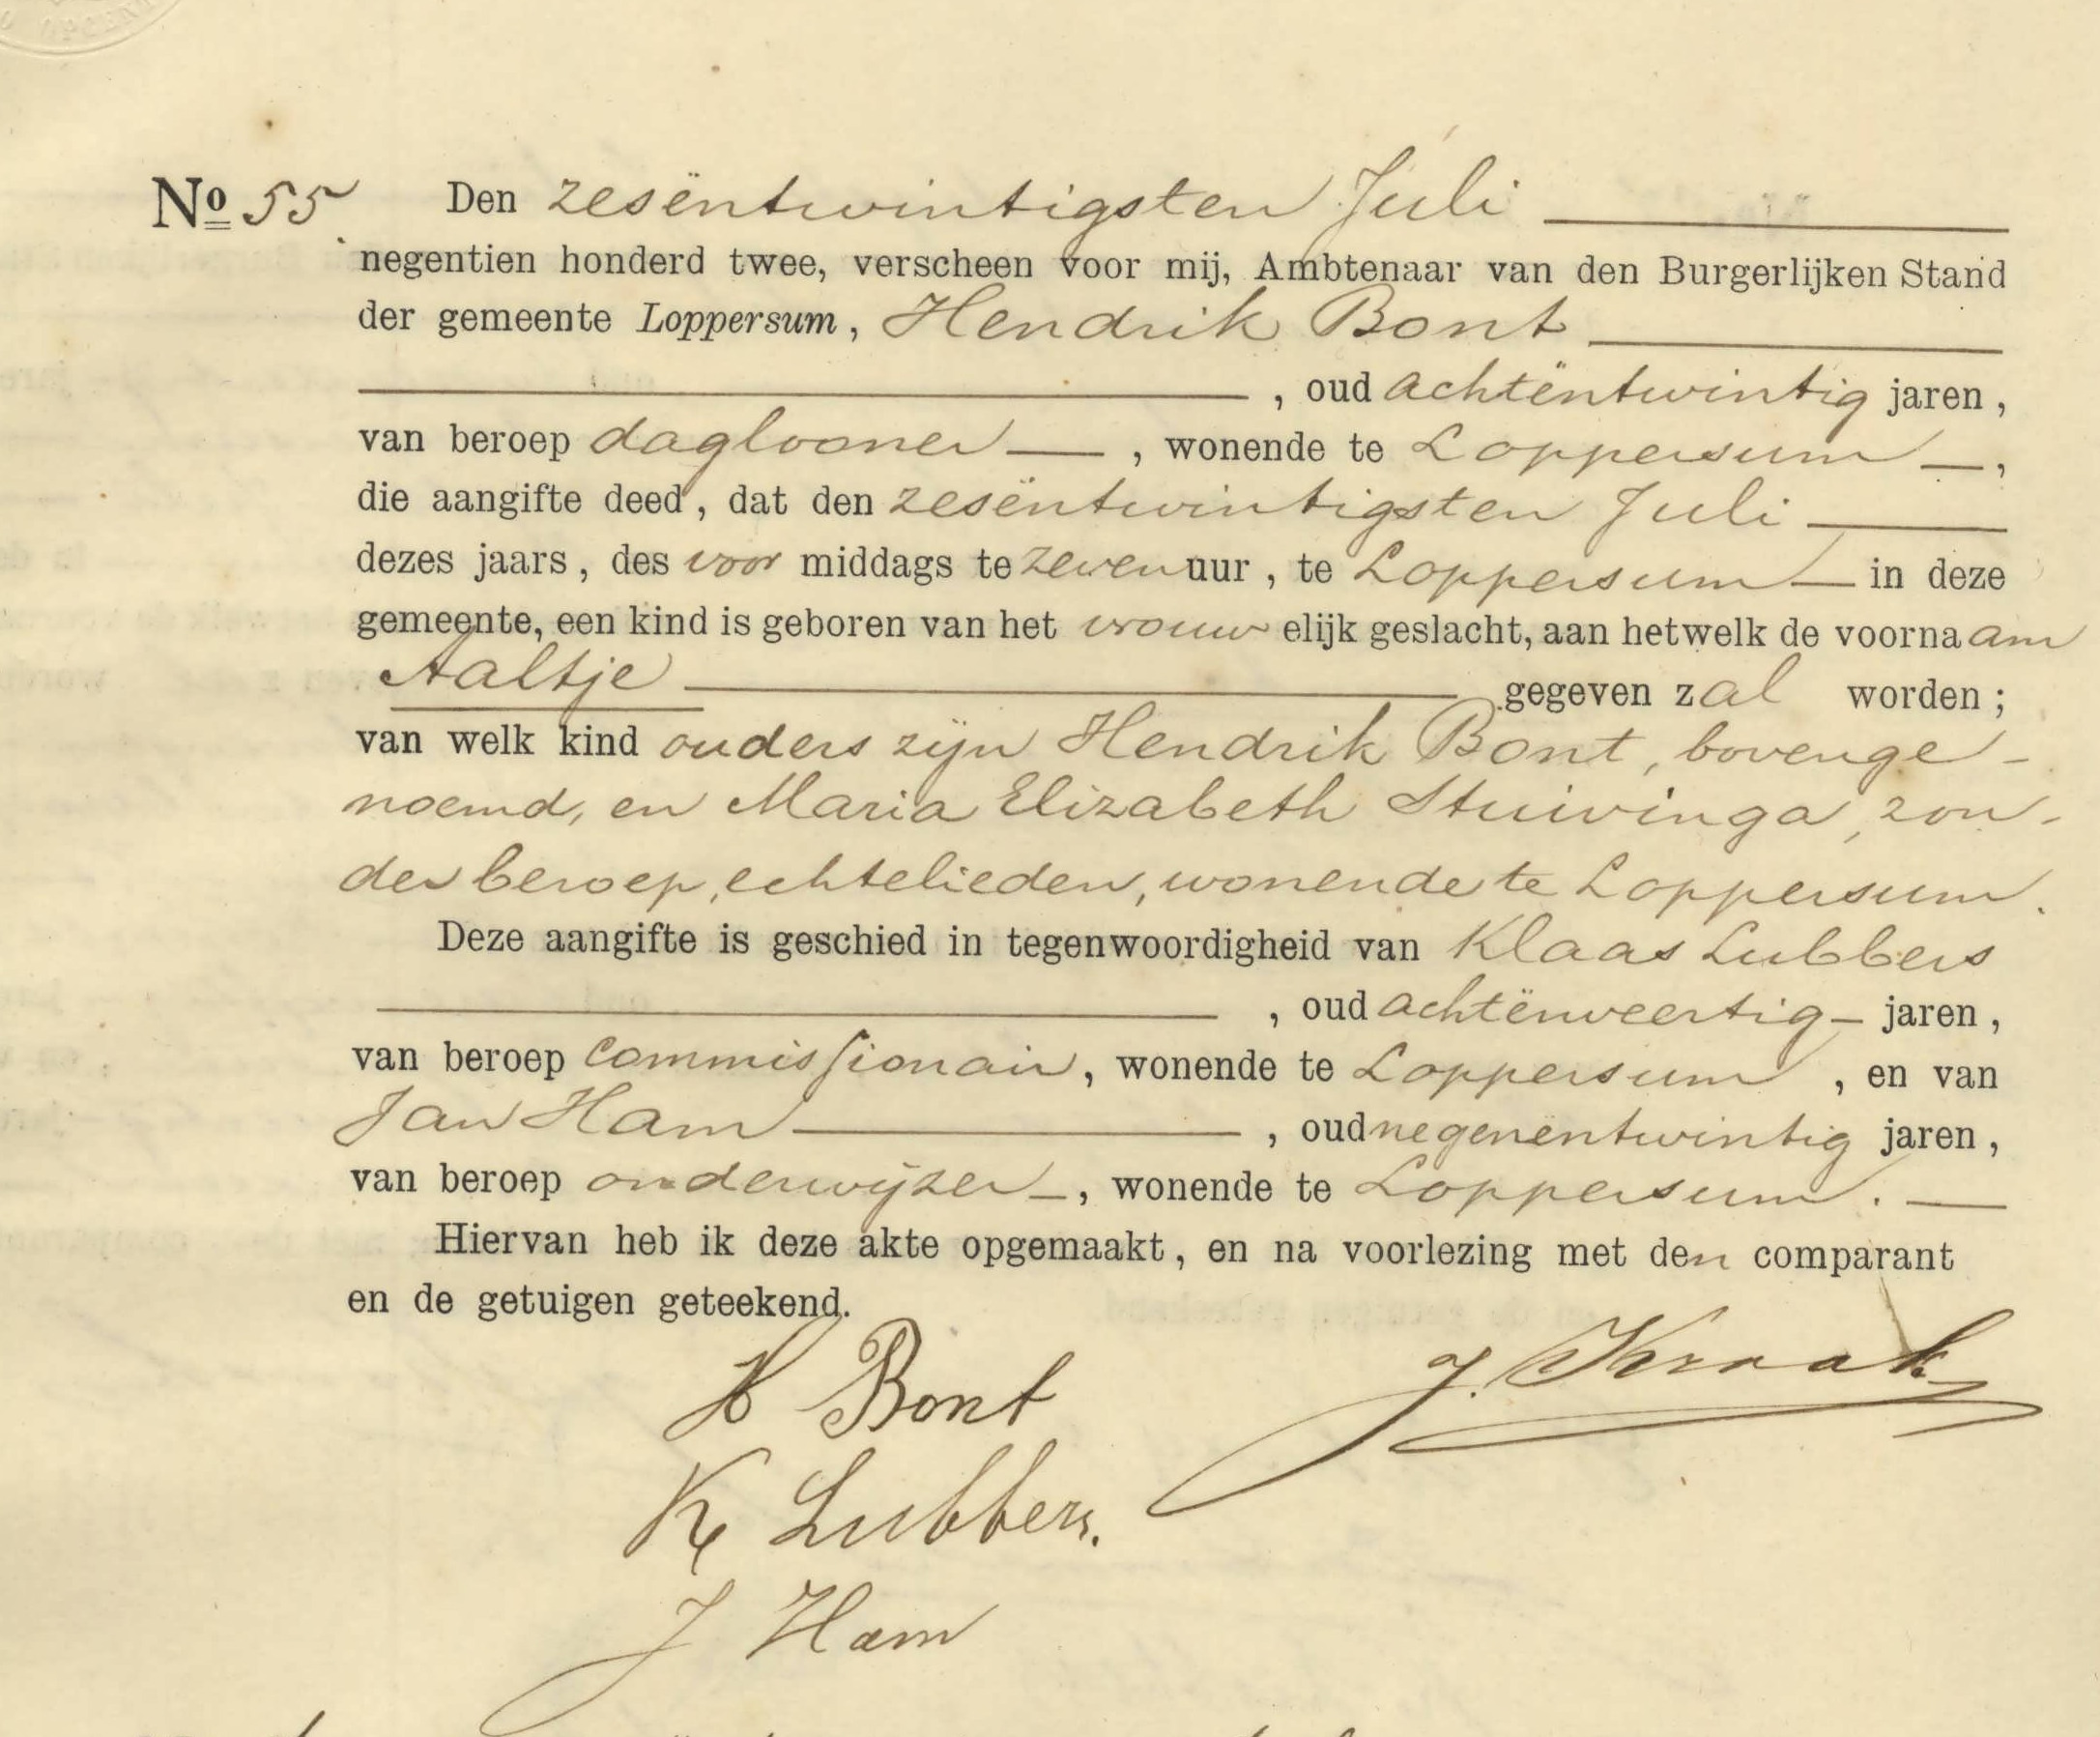 No 55 Den zesëntwintigsten Juli
negentien honderd twee, verscheen voor mij, Ambtenaar van den Burgerlijken Stand
der gemeente Loppersum, Hendrik Bont
, oud achtëntwintig jaren,
van beroep daglooner, wonende te Loppersum,
die aangifte deed, dat den zesëntwintigsten Juli
dezes jaars, des voor middags te zeven uur, te Loppersum in deze
gemeente, een kind is geboren van het vrouw elijk geslacht, aan hetwelk de voornaam
Aaltje gegeven zal worden;
van welk kind ouders zijn Hendrik Bont, bovenge-
noemd, en Maria Elizabeth Stuivinga, zon-
der beroep, echtelieden, wonende te Loppersum.
Deze aangifte is geschied in tegenwoordigheid van Klaas Lubbers
, oud achtënveertig jaren,
van beroep commissionair, wonende te Loppersum, en van
Jan Ham, oud negenëntwintig jaren,
van beroep onderwijzer, wonende te Loppersum.
Hiervan heb ik deze akte opgemaakt, en na voorlezing met den comparant
en de getuigen geteekend.
H Bont J.
K Lubbers.
J Ham